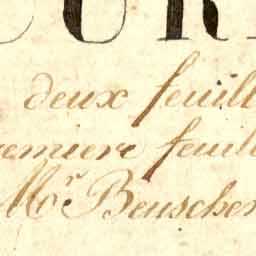 deux feuill
remiere feuil
Mr. Beuscher